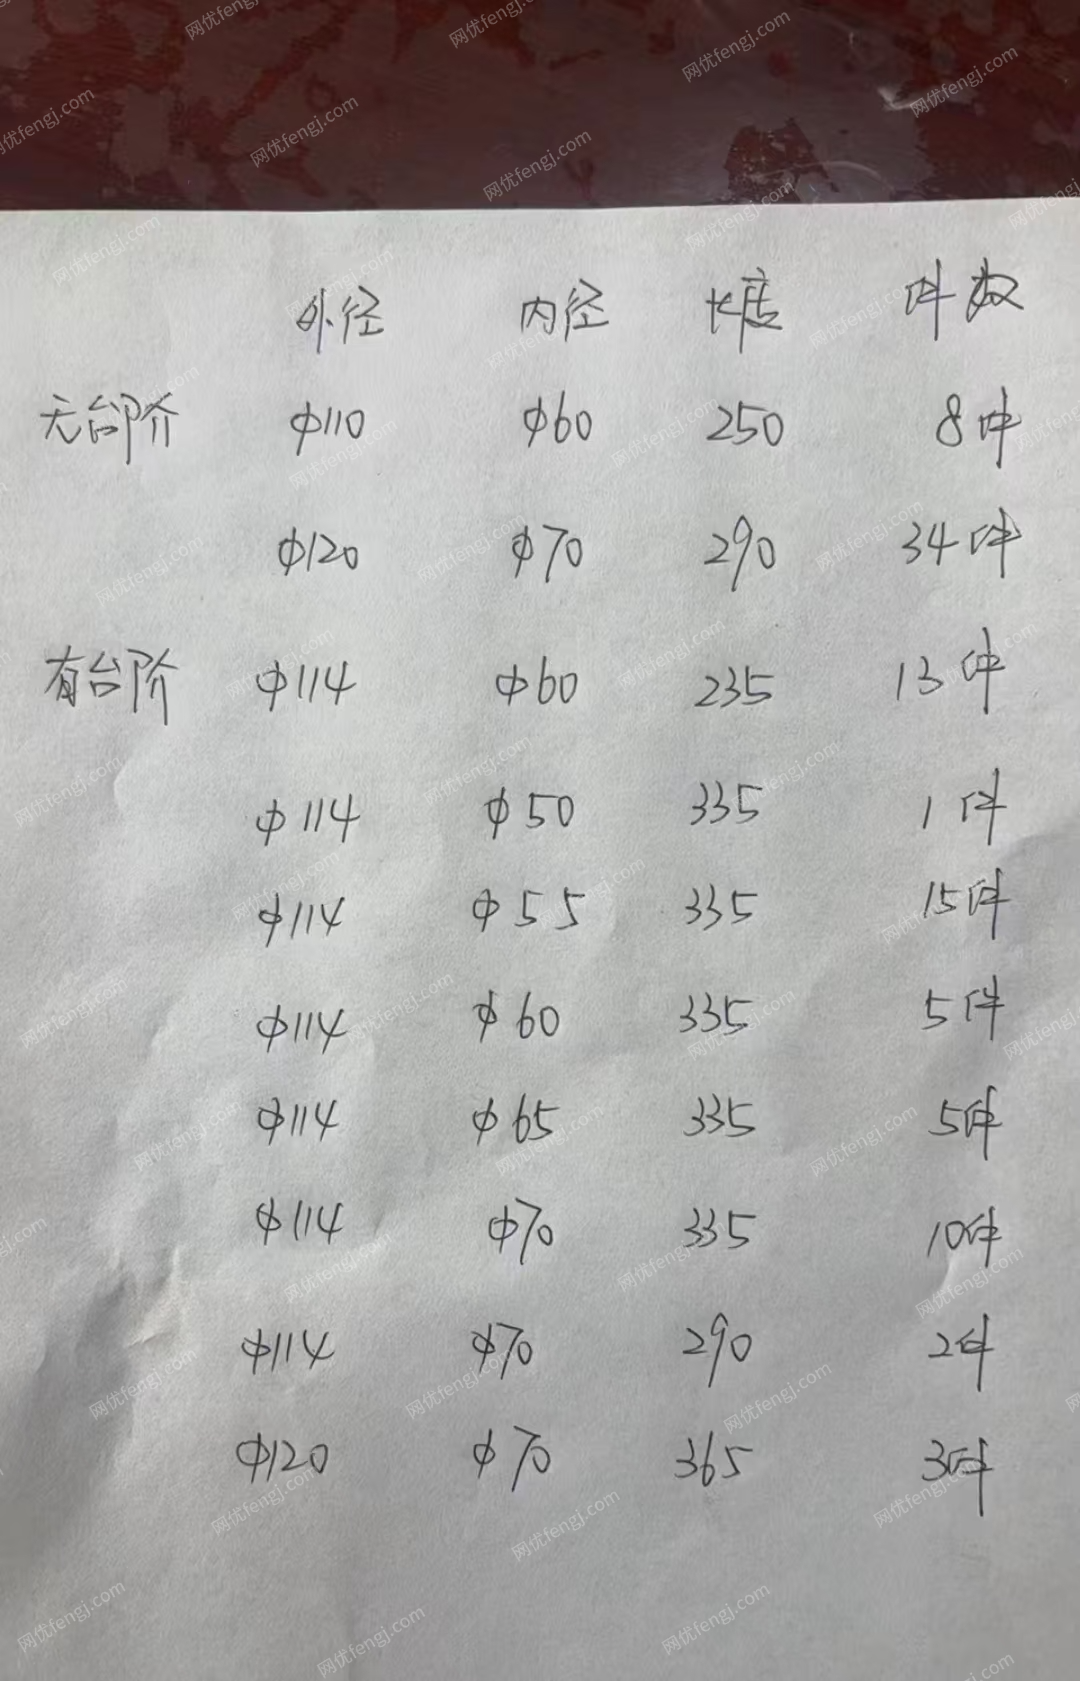 外径 内径 长度 件数
无台阶 φ110 φ60 250 8件
φ120 φ70 290 34件
有台阶 φ114 φ60 235 13件
φ114 φ50 335 1件
φ114 φ55 335 15件
φ114 φ60 335 5件
φ114 φ65 335 5件
φ114 φ70 335 10件
φ114 φ70 290 2件
φ120 φ70 365 3件
网优fengj.com